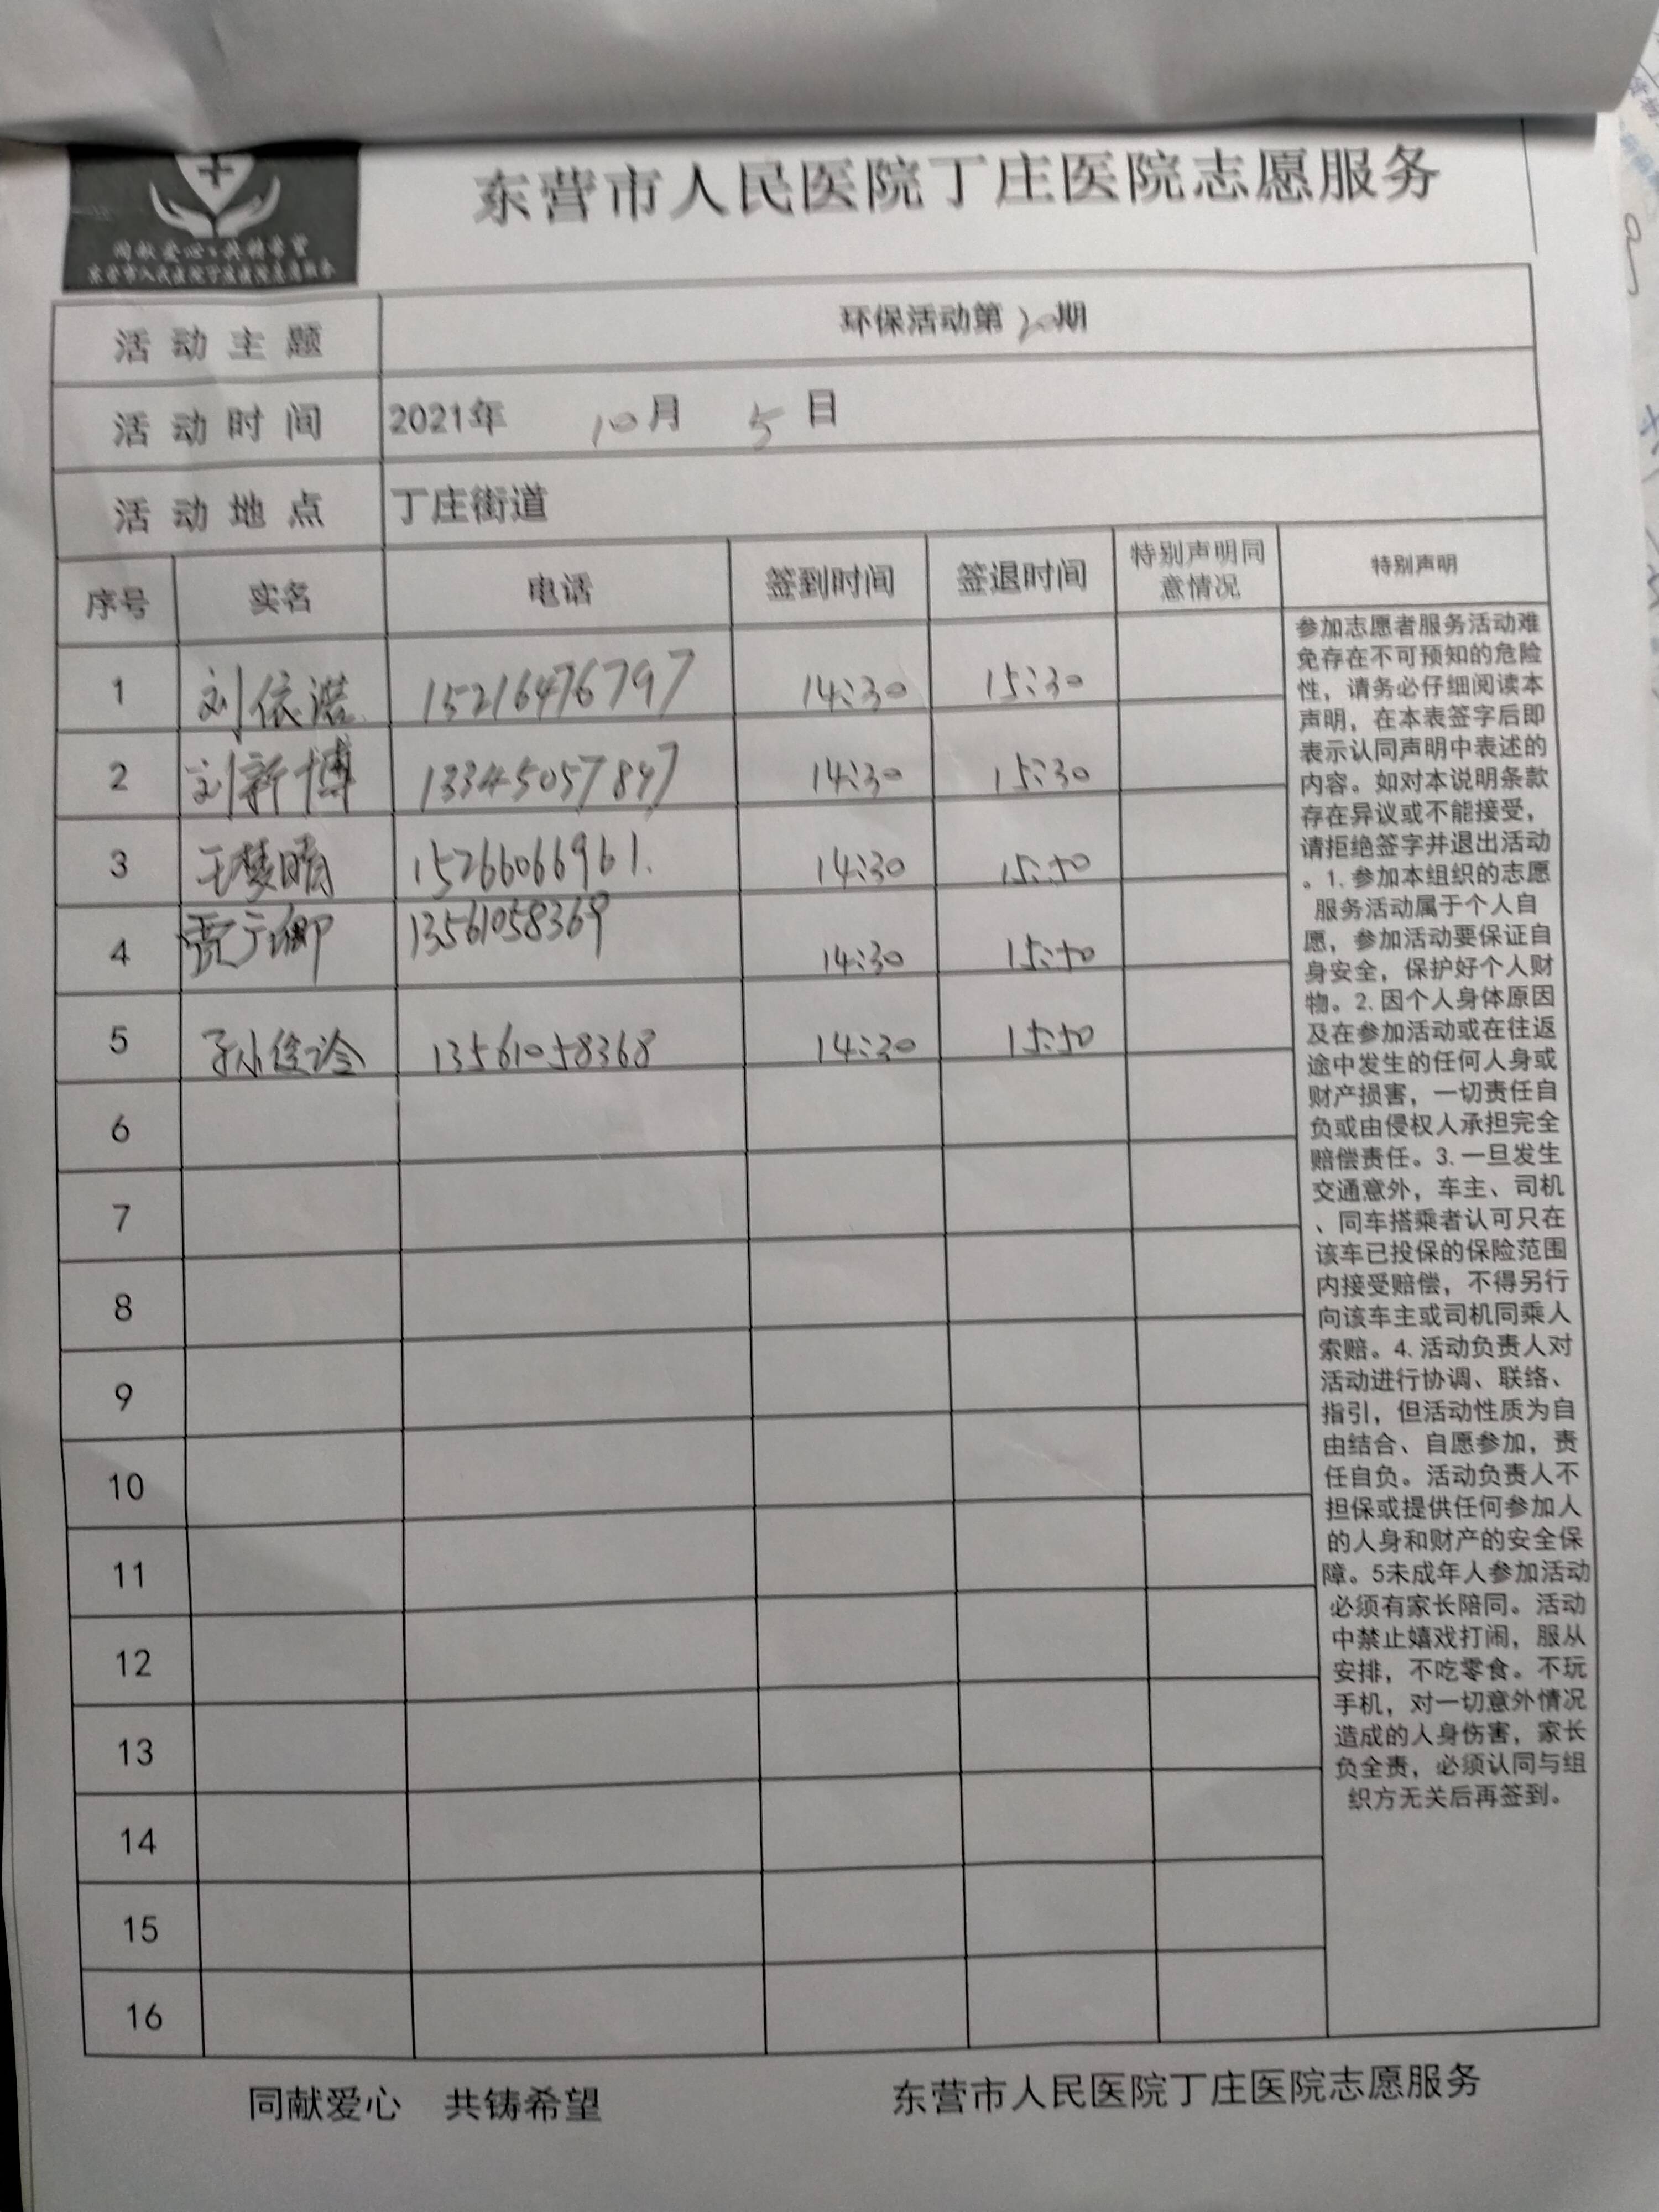 同献爱心·共铸希望
东营市人民医院丁庄医院志愿服务
东营市人民医院丁庄医院志愿服务
活动主题 环保活动第 期
活动时间 2021年 10月 5日
活动地点 丁庄街道
序号 实名 电话 签到时间 签退时间 特别声明同意情况 特别声明
1 刘依诺 15216476797 14:30 15:30
2 刘新博 13345057897 14:30 15:30
3 王梦晴 15266066961. 14:30 15:50
4 贾 卿 13561058369 14:30 15:50
5 13561058368 14:30 15:50
6
7
8
9
10
11
12
13
14
15
16
参加志愿者服务活动难
免存在不可预知的危险
性，请务必仔细阅读本
声明，在本表签字后即
表示认同声明中表述的
内容。如对本说明条款
存在异议或不能接受，
请拒绝签字并退出活动
。1.参加本组织的志愿
服务活动属于个人自
愿，参加活动要保证自
身安全，保护好个人财
物。2.因个人身体原因
及在参加活动或在往返
途中发生的任何人身或
财产损害，一切责任自
负或由侵权人承担完全
赔偿责任。3.一旦发生
交通意外，车主、司机
、同车搭乘者认可只在
该车已投保的保险范围
内接受赔偿，不得另行
向该车主或司机同乘人
索赔。4.活动负责人对
活动进行协调、联络、
指引，但活动性质为自
由结合、自愿参加，责
任自负。活动负责人不
担保或提供任何参加人
的人身和财产的安全保
障。5未成年人参加活动
必须有家长陪同。活动
中禁止嬉戏打闹，服从
安排，不吃零食。不玩
手机，对一切意外情况
造成的人身伤害，家长
负全责，必须认同与组
织方无关后再签到。
同献爱心 共铸希望 东营市人民医院丁庄医院志愿服务